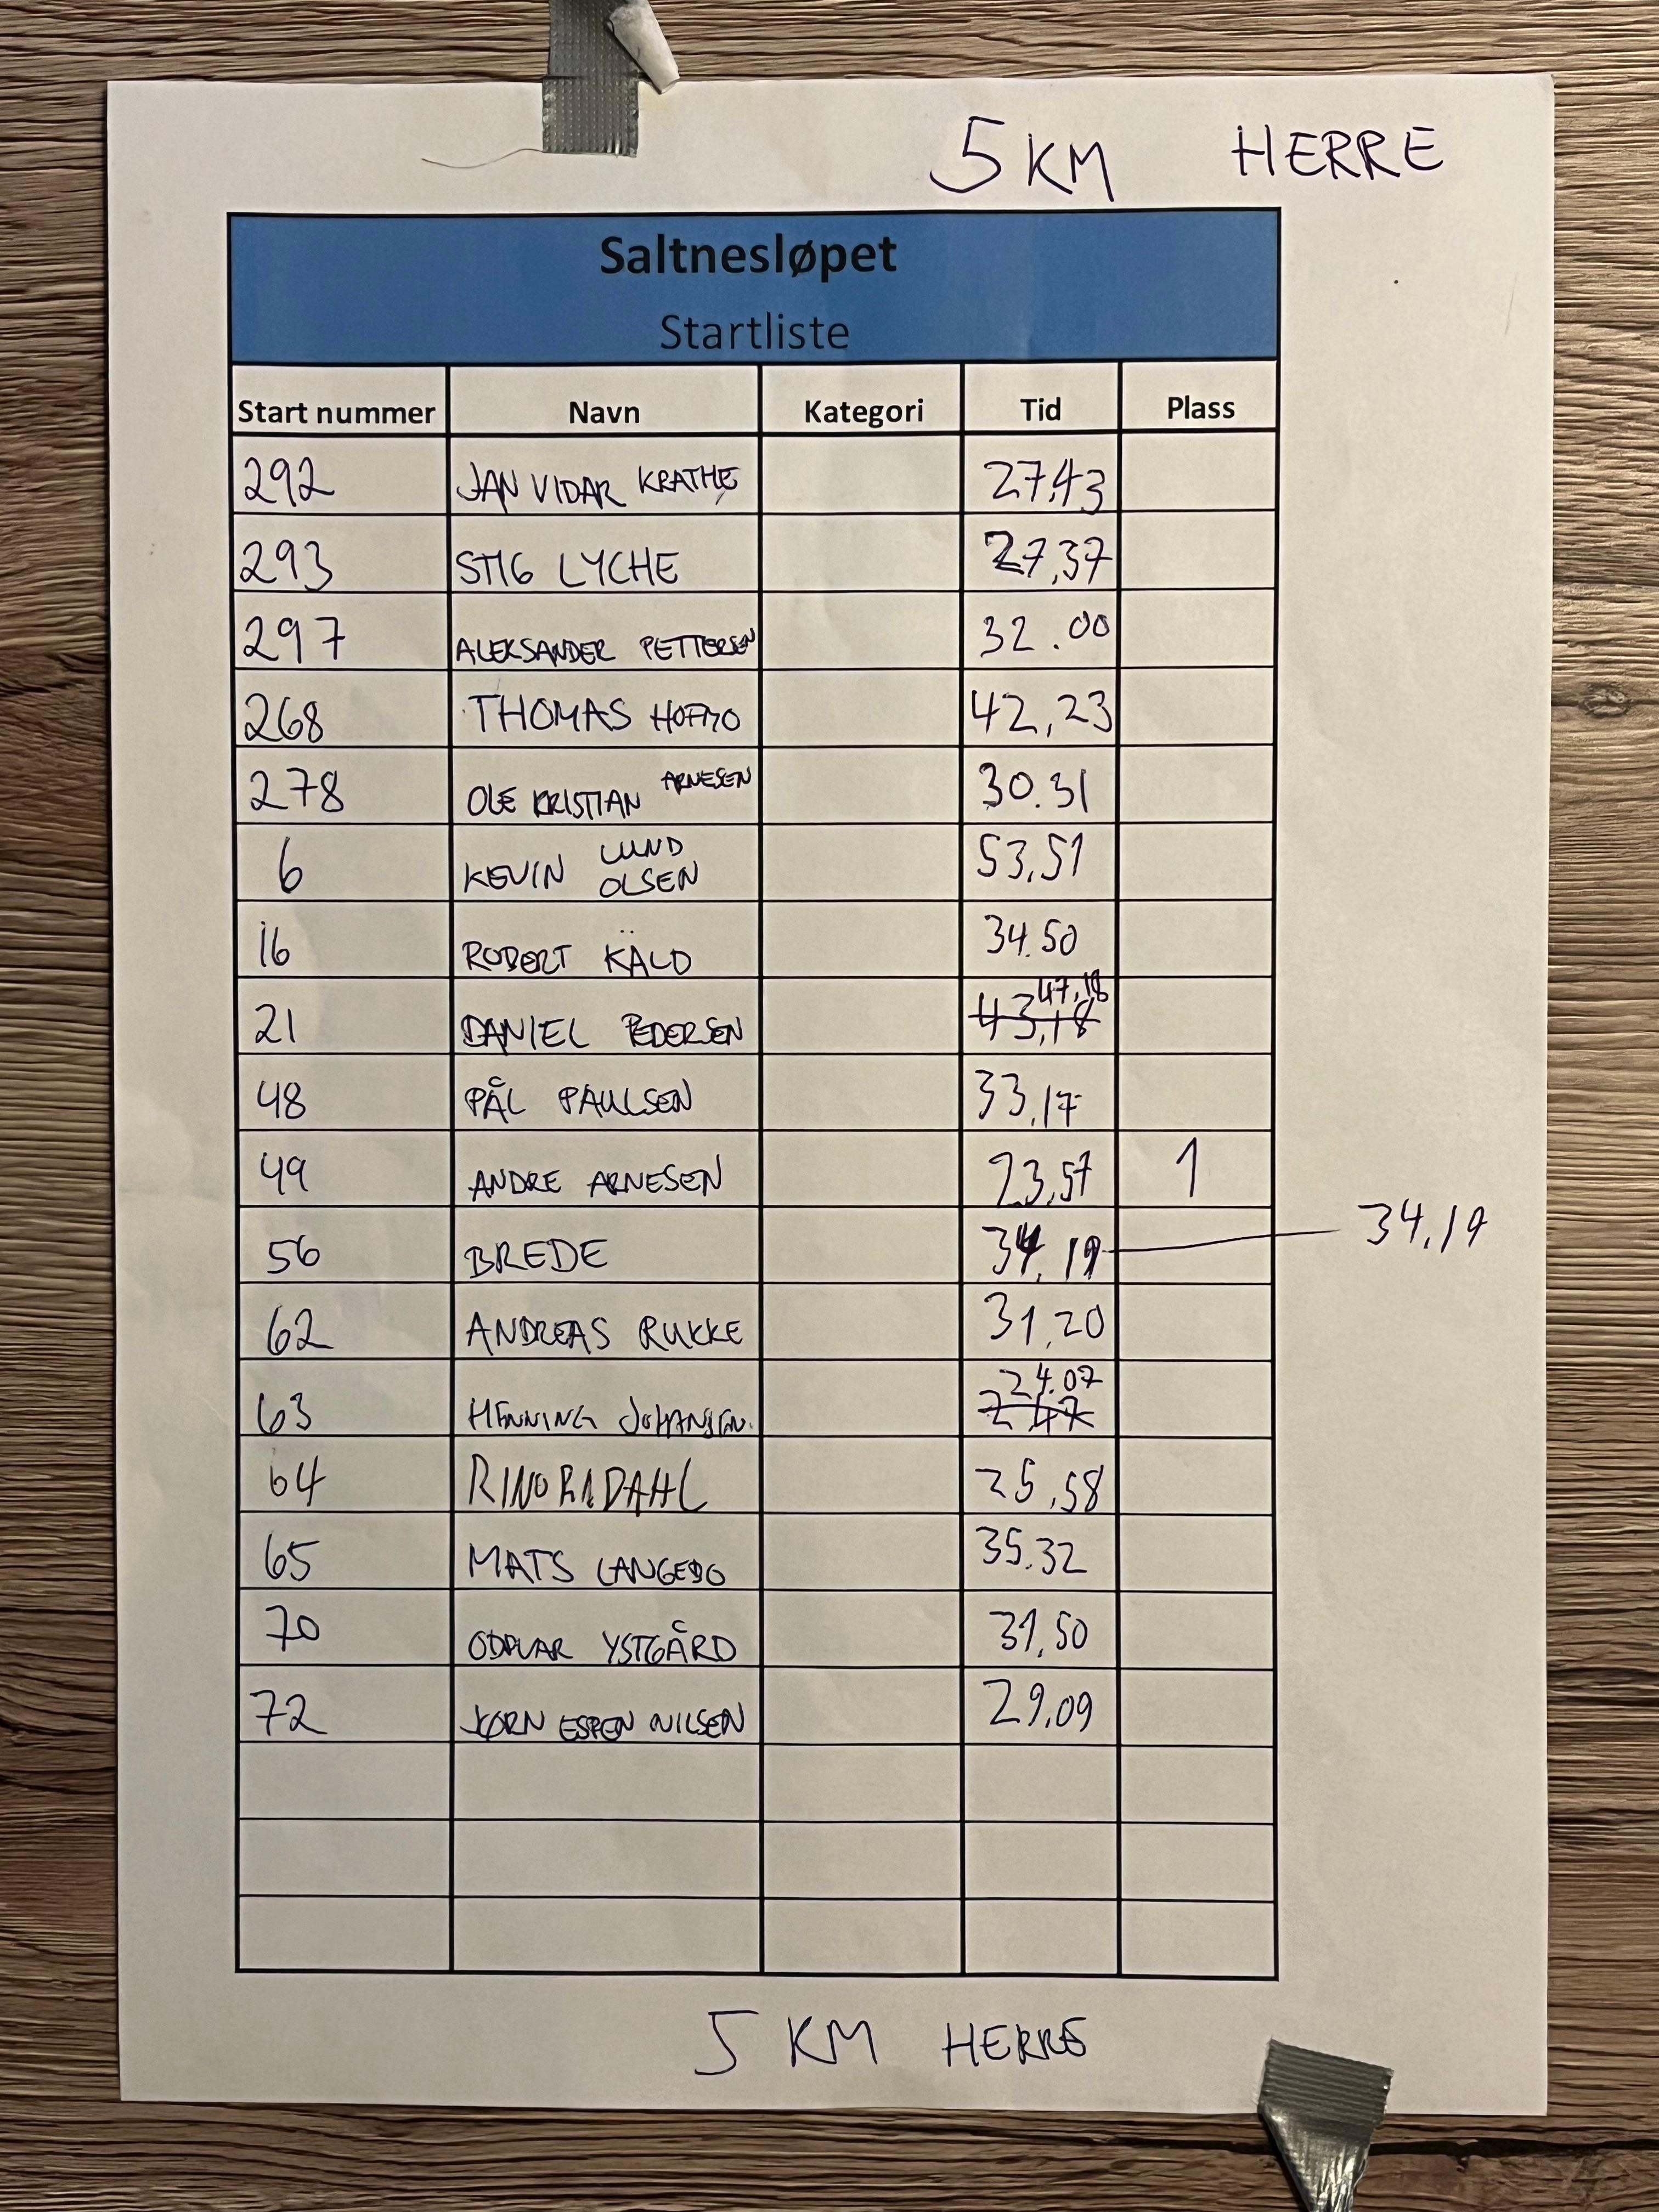 5 KM HERRE
Saltnesløpet
Startliste
Start nummer Navn Kategori Tid Plass
292 JAN VIDAR KRATHE 27,43
293 STIG LYCHE 27,37
297 ALEKSANDER PETTERSEN 32.00
268 THOMAS HOFMO 42,23
278 OLE KRISTIAN ARNESEN 30.31
6 KEVIN LUND OLSEN 53,51
16 ROBERT KÄLD 34.50
21 DANIEL PEDERSEN 43,18 47,18
48 PÅL PAULSEN 33,17
49 ANDRE ARNESEN 23,57 1
56 BREDE 34,19 34,19
62 ANDREAS RUKKE 31,20
63 HENNING JOHANSEN. 24.07
64 RINO 25,58
65 MATS 35.32
70 ODDVAR YSTGÅRD 31,50
72 JØRN ESPEN NILSEN 29,09
5 KM HERRE